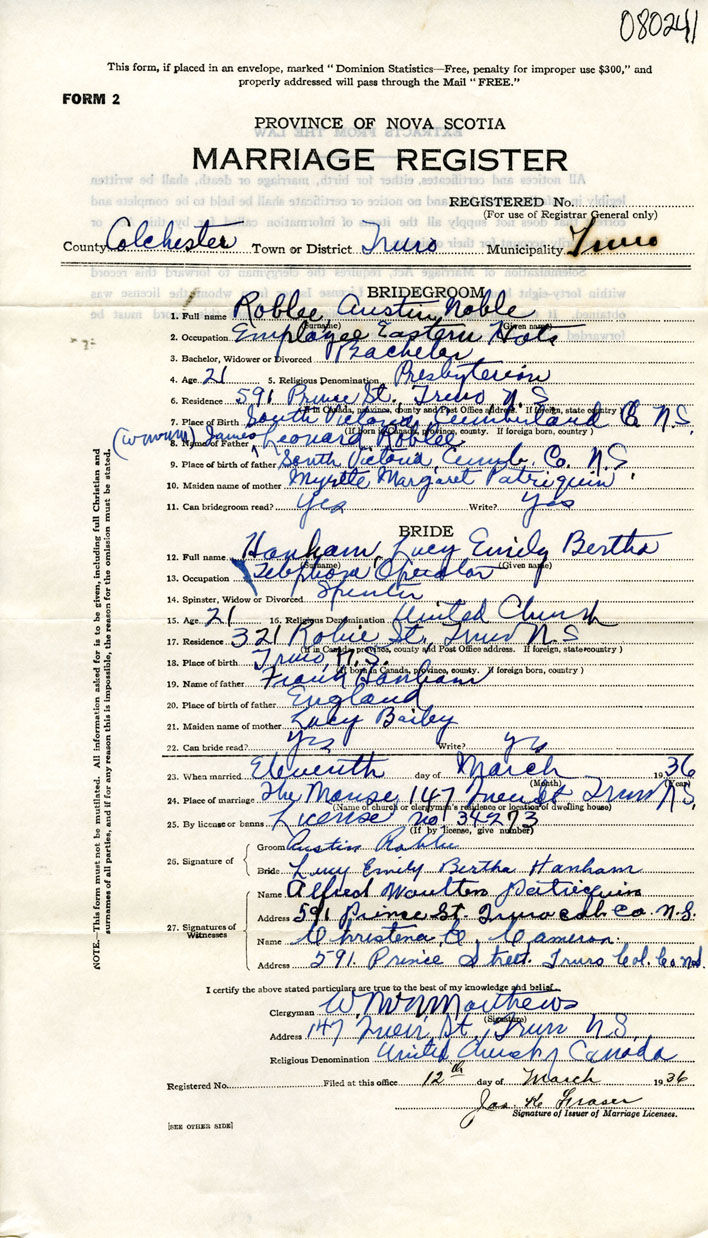 080241
This form, if placed in an envelope, marked "Dominion Statistics—Free, penalty for improper use $300," and
properly addressed will pass through the Mail "FREE."
FORM 2
PROVINCE OF NOVA SCOTIA
MARRIAGE REGISTER
REGISTERED No.
(For use of Registrar General only)
County Colchester Town or District Truro Municipality Truro
BRIDEGROOM
1. Full name Roblee, Austin Noble
(Surname) (Given name)
2. Occupation Employee Eastern Hats
3. Bachelor, Widower or Divorced Bachelor
4. Age 21 5. Religious Denomination Presbyterian
6. Residence 591 Prince St. Truro N.S.
(If in Canada, province, county and Post Office address. If foreign, state country)
7. Place of Birth South Victoria Cumberland Co. N.S.
(If born in Canada, province, county. If foreign born, country)
8. Name of Father James Leonard Roblee
9. Place of birth of father South Victoria, Cumb. Co. N.S.
10. Maiden name of mother Myrtle Margaret Patriquin
11. Can bridegroom read? Yes Write? Yes
BRIDE
12. Full name Hanham, Lucy Emily Bertha
(Surname) (Given name)
13. Occupation Telephone Operator
14. Spinster, Widow or Divorced Spinster
15. Age 21 16. Religious Denomination United Church
17. Residence 321 Robie St. Truro N.S
(If in Canada, province, county and Post Office address. If foreign, state country)
18. Place of birth Truro, N.S.
(If born in Canada, province, county. If foreign born, country)
19. Name of father Frank Hanham
20. Place of birth of father England
21. Maiden name of mother Lucy Bailey
22. Can bride read? Yes Write? Yes
23. When married Eleventh day of March 1936
(Month) (Year)
24. Place of marriage The Manse 147 St Truro N.S.
(Name of church or clergyman's residence or location of dwelling house)
25. By license or banns License No. 34273
(If by license, give number)
26. Signature of
Groom Austin Roblee
Bride Lucy Emily Bertha Hanham
27. Signatures of Witnesses
Name Alfred Moulton Patriquin
Address 591 Prince St. Truro Col. Co. N.S.
Name Christena Cameron.
Address 591 Prince Street. Truro Col. Co. N.S.
I certify the above stated particulars are true to the best of my knowledge and belief.
Clergyman Matthews
(Signature)
Address 147 St., Truro N.S.
Religious Denomination United Church of Canada
Registered No. Filed at this office 12th day of March 1936
Jas. Fraser
Signature of Issuer of Marriage Licenses.
[SEE OTHER SIDE]
NOTE.—This form must not be mutilated. All information asked for is to be given, including full Christian and
surnames of all parties, and if for any reason this is impossible, the reason for the omission must be stated.